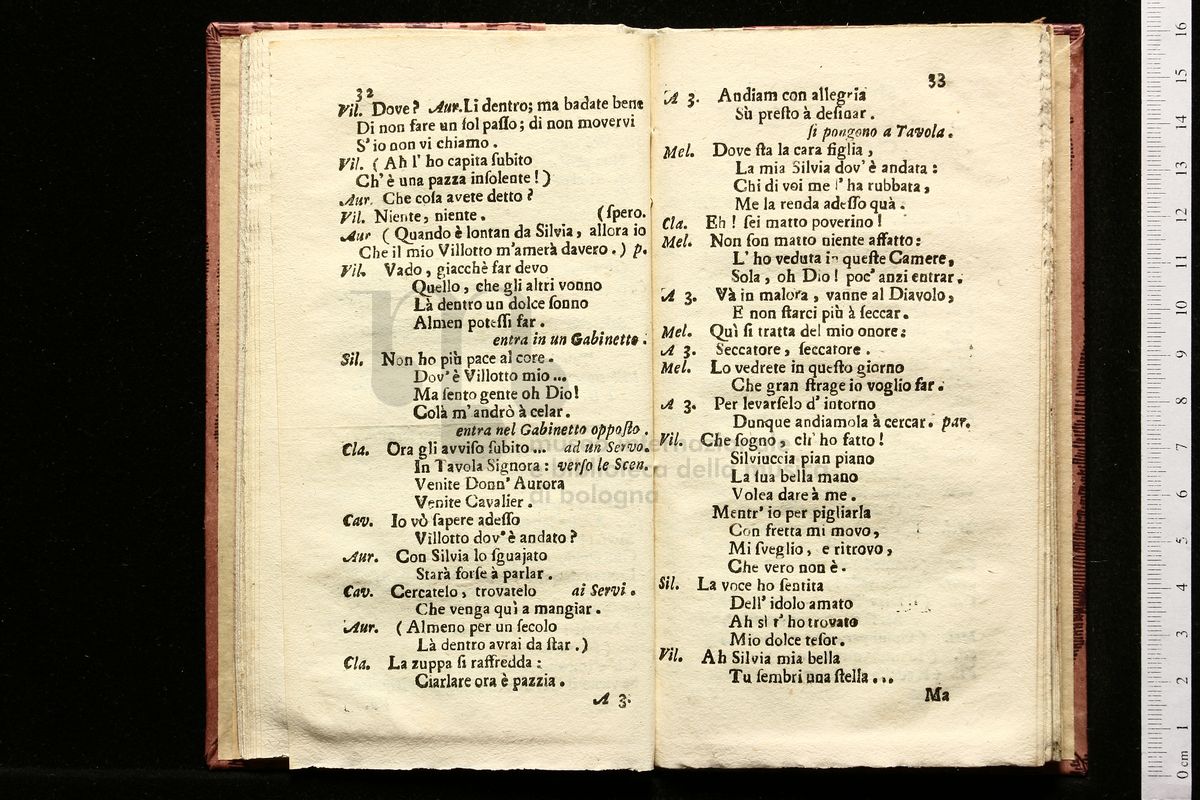 32
Vil. Dove? Aur. Li dentro; ma badate bene
Di non fare un ſol paſſo; di non movervi
S' io non vi chiamo.
Vil. (Ah l' ho capita ſubito
Ch' è una pazza inſolente!)
Aur. Che coſa avete detto?
Vil. Niente, niente. (ſpero.
Aur (Quando è lontan da Silvia, allora io
Che il mio Villotto m'amerà davero.) p.
Vil. Vado, giacchè far devo
Quello, che gli altri vonno
Là dentro un dolce ſonno
Almen poteſſi far.
entra in un Gabinetto.
Sil. Non ho più pace al core.
Dov' è Villotto mio...
Ma ſento gente oh Dio!
Colà m' andrò à celar.
entra nel Gabinetto oppoſto.
Cla. Ora gli avviſo ſubito... ad un Servo.
In Tavola Signora: verſo le Scen.
Venite Donn' Aurora
Venite Cavalier.
Cav. Io vò ſapere adeſſo
Villotto dov' è andato?
Aur. Con Silvia lo ſguajato
Starà forſe à parlar.
Cav. Cercatelo, trovatelo ai Servi.
Che venga quì a mangiar.
Aur. (Almeno per un ſecolo
Là dentro avrai da ſtar.)
Cla. La zuppa ſi raffredda:
Ciarlare ora è pazzia.
A 3.
33
A 3. Andiam con allegria
Sù preſto à deſinar.
ſi pongono a Tavola.
Mel. Dove ſta la cara figlia,
La mia Silvia dov' è andata:
Chi di voi me l' ha rubbata,
Me la renda adeſſo quà.
Cla. Eh! ſei matto poverino!
Mel. Non ſon matto niente affatto:
L' ho veduta in queſte Camere,
Sola, oh Dio! poc' anzi entrar.
A 3. Và in malora, vanne al Diavolo,
E non ſtarci più à ſeccar.
Mel. Quì ſi tratta del mio onore:
A 3. Seccatore, ſeccatore.
Mel. Lo vedrete in queſto giorno
Che gran ſtrage io voglio far.
A 3. Per levarſelo d' intorno
Dunque andiamola à cercar. par.
Vil. Che ſogno, ch' ho fatto!
Silviuccia pian piano
La ſua bella mano
Volea dare à me.
Mentr' io per pigliarla
Con fretta mi movo,
Mi ſveglio, e ritrovo,
Che vero non è.
Sil. La voce ho ſentita
Dell' idolo amato
Ah sì t' ho trovato
Mio dolce teſor.
Vil. Ah Silvia mia bella
Tu ſembri una ſtella...
Ma